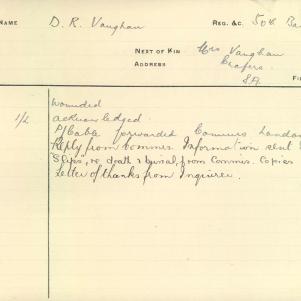 NAME D. R. Vaughan REG. &C. 50th Ba
NEXT OF KIN Mrs Vaughan
ADDRESS Crafers
S.A.
FI
wounded
acknowledged
forwarded Commrs London
Reply from Commr. Information sent
"Slips", re death & burial, from Commrs. Copies
Letter of thanks from Inquirer.